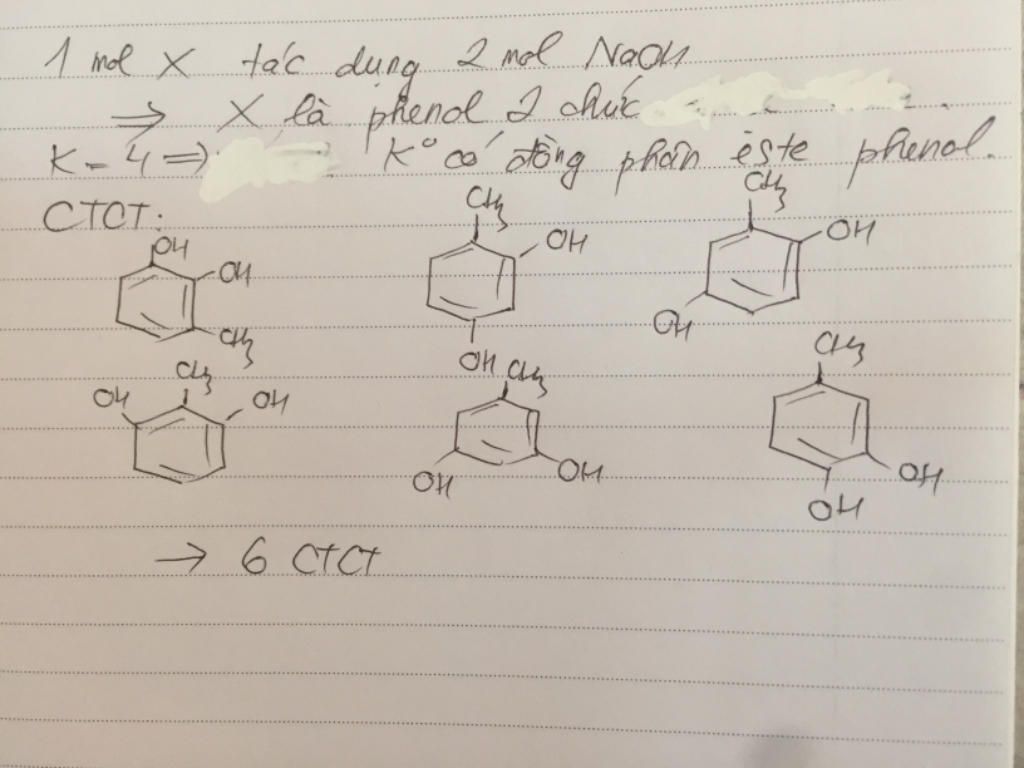 1 mol X tác dụng 2 mol NaOH
⇒ X là phenol 2 chức
K = 4 ⇒ K° có đồng phân este phenol.
CTCT:
OH OH CH3
CH3 OH OH
CH3 OH OH
CH3 OH OH
CH3 OH OH
CH3 OH OH
→ 6 CTCT